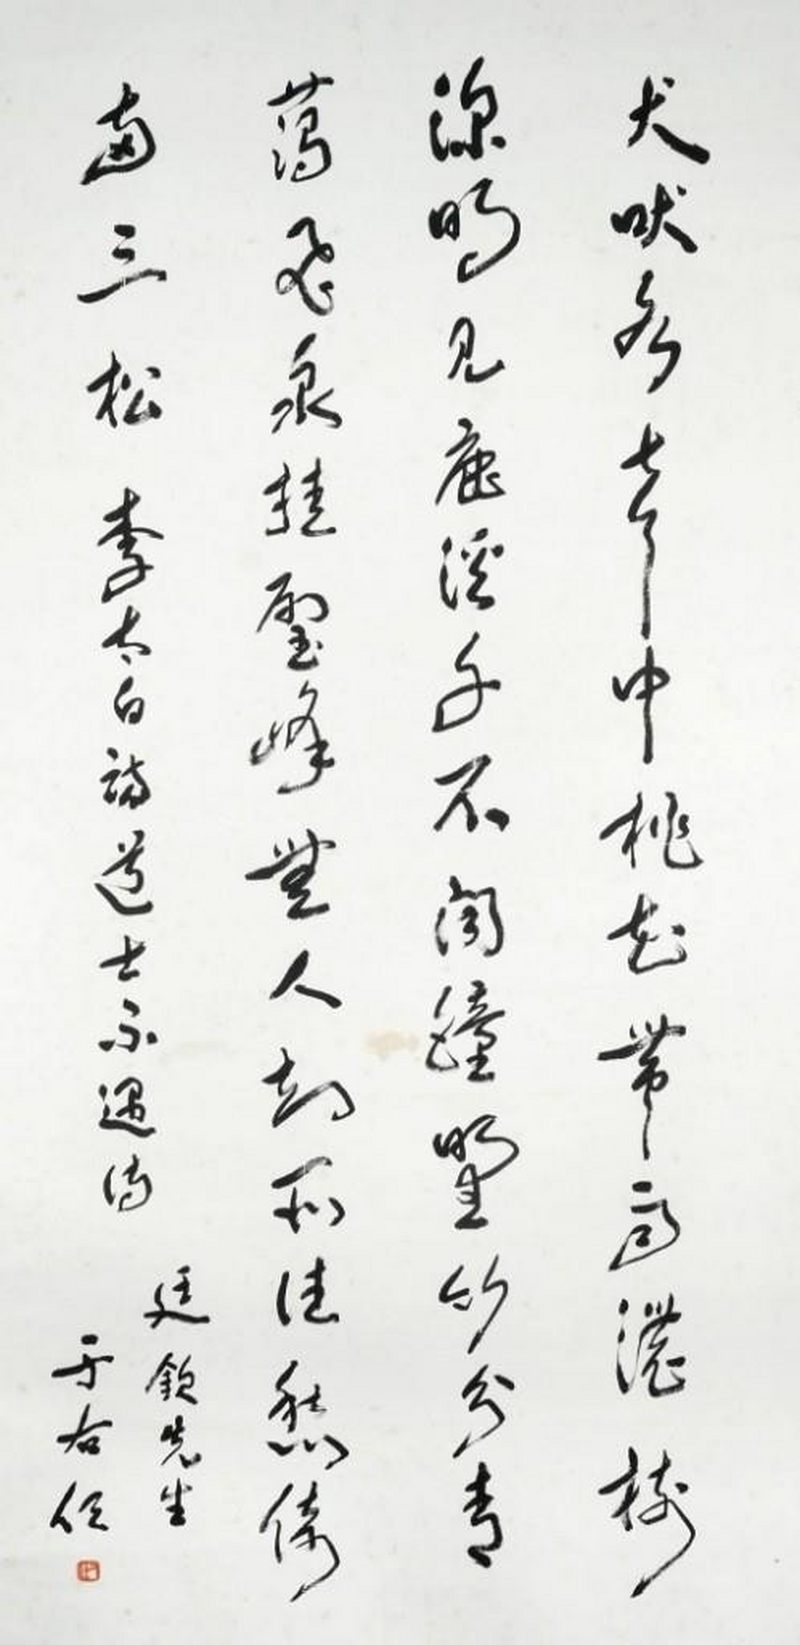 犬吠水聲中桃花帶雨濃樹
深時見鹿溪午不聞鐘野竹分青
藹飛泉挂碧峰無人知所往愁倚
兩三松 李太白訪道士不遇詩
廷欽先生
于右任